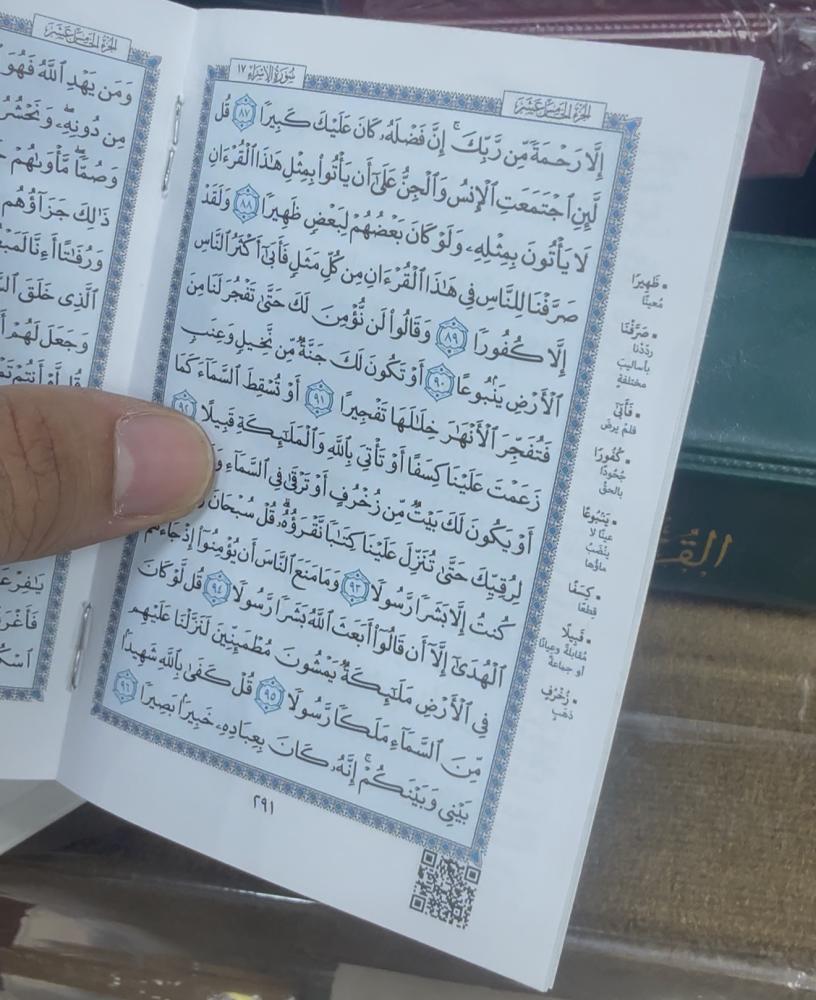 الجزء الخامس عشر
سورة الإسراء ١٧
إِلَّا رَحْمَةً مِّن رَّبِّكَ ۚ إِنَّ فَضْلَهُۥ كَانَ عَلَيْكَ كَبِيرًا ٨٧ قُل
لَّئِنِ ٱجْتَمَعَتِ ٱلْإِنسُ وَٱلْجِنُّ عَلَىٰٓ أَن يَأْتُوا۟ بِمِثْلِ هَـٰذَا ٱلْقُرْءَانِ
لَا يَأْتُونَ بِمِثْلِهِۦ وَلَوْ كَانَ بَعْضُهُمْ لِبَعْضٍ ظَهِيرًا ٨٨ وَلَقَدْ
صَرَّفْنَا لِلنَّاسِ فِى هَـٰذَا ٱلْقُرْءَانِ مِن كُلِّ مَثَلٍ فَأَبَىٰٓ أَكْثَرُ ٱلنَّاسِ
إِلَّا كُفُورًا ٨٩ وَقَالُوا۟ لَن نُّؤْمِنَ لَكَ حَتَّىٰ تَفْجُرَ لَنَا مِنَ
ٱلْأَرْضِ يَنۢبُوعًا ٩٠ أَوْ تَكُونَ لَكَ جَنَّةٌ مِّن نَّخِيلٍ وَعِنَبٍ
فَتُفَجِّرَ ٱلْأَنْهَـٰرَ خِلَـٰلَهَا تَفْجِيرًا ٩١ أَوْ تُسْقِطَ ٱلسَّمَآءَ كَمَا
زَعَمْتَ عَلَيْنَا كِسَفًا أَوْ تَأْتِىَ بِٱللَّهِ وَٱلْمَلَـٰٓئِكَةِ قَبِيلًا ٩٢
أَوْ يَكُونَ لَكَ بَيْتٌ مِّن زُخْرُفٍ أَوْ تَرْقَىٰ فِى ٱلسَّمَآءِ
لِرُقِيِّكَ حَتَّىٰ تُنَزِّلَ عَلَيْنَا كِتَـٰبًا نَّقْرَؤُهُۥ ۗ قُلْ سُبْحَانَ
كُنتُ إِلَّا بَشَرًا رَّسُولًا ٩٣ وَمَا مَنَعَ ٱلنَّاسَ أَن يُؤْمِنُوٓا۟ إِذْ جَآءَهُمُ
ٱلْهُدَىٰٓ إِلَّآ أَن قَالُوٓا۟ أَبَعَثَ ٱللَّهُ بَشَرًا رَّسُولًا ٩٤ قُل لَّوْ كَانَ
فِى ٱلْأَرْضِ مَلَـٰٓئِكَةٌ يَمْشُونَ مُطْمَئِنِّينَ لَنَزَّلْنَا عَلَيْهِم
مِّنَ ٱلسَّمَآءِ مَلَكًا رَّسُولًا ٩٥ قُلْ كَفَىٰ بِٱللَّهِ شَهِيدًۢا
بَيْنِى وَبَيْنَكُمْ ۚ إِنَّهُۥ كَانَ بِعِبَادِهِۦ خَبِيرًۢا بَصِيرًا ٩٦
٢٩١
• ظَهِيرًا
مُعينًا
• صَرَّفْنَا
ردّدنا
بأساليبَ
مختلفةٍ
• فَأَبَىٰٓ
فلمْ يرضَ
• كُفُورًا
جُحودًا
بالحقِّ
• يَنۢبُوعًا
عينًا لا
ينضبُ
ماؤها
• كِسَفًا
قِطعًا
• قَبِيلًا
مُقابلةً وعيانًا
أو جماعةً
• زُخْرُفٍ
ذهبٍ
الجزء الخامس عشر
وَمَن يَهْدِ ٱللَّهُ فَهُوَ
مِن دُونِهِۦ ۖ وَنَحْشُرُ
وَصُمًّا ۖ مَّأْوَىٰهُمْ
ذَٰلِكَ جَزَآؤُهُم
وَرُفَـٰتًا أَءِنَّا لَمَبْعُ
ٱلَّذِى خَلَقَ ٱلسَّ
وَجَعَلَ لَهُمْ أَ
قُل لَّوْ أَنتُمْ تَمْ
يَـٰفِرْعَ
فَأَغْرَ
ٱسْكُ
القُ